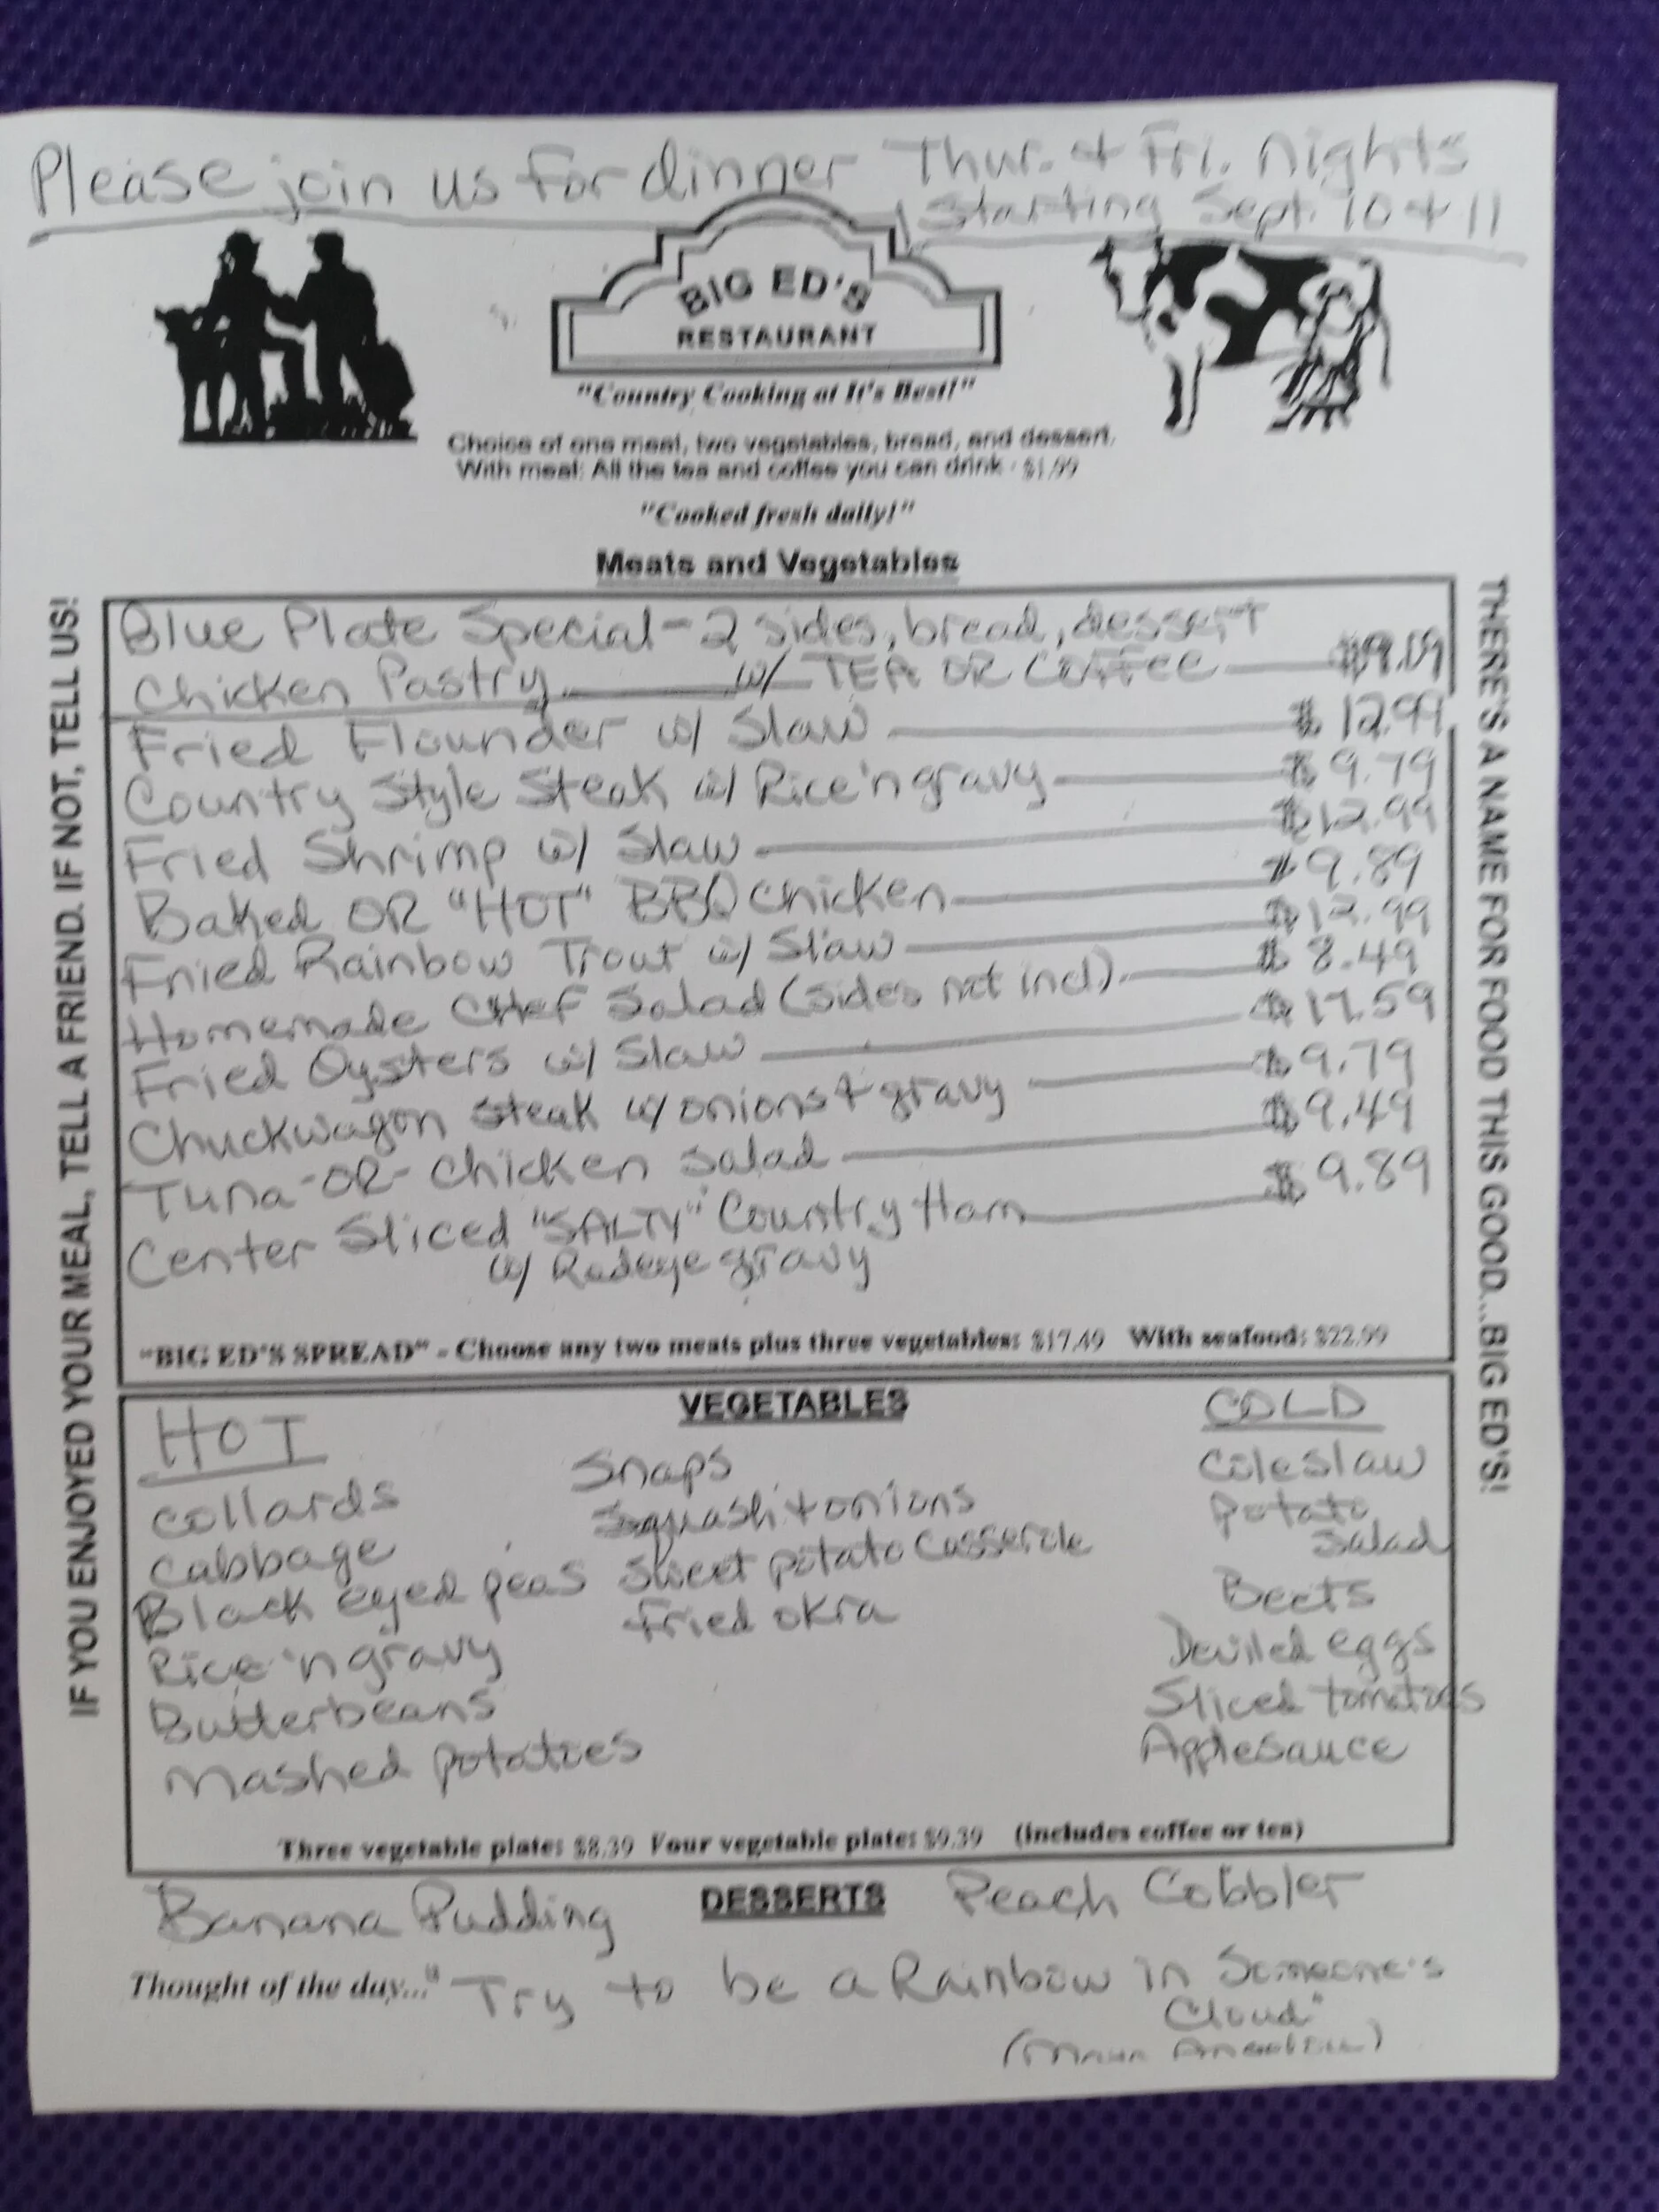 Please join us for dinner Thur. + Fri. Nights
Starting Sept. 10 + 11
BIG ED'S
RESTAURANT
"Country Cooking at It's Best!"
Choice of one meat, two vegetables, bread, and dessert.
With meal: All the tea and coffee you can drink - $1.99
"Cooked fresh daily!"
Meats and Vegetables
IF YOU ENJOYED YOUR MEAL, TELL A FRIEND. IF NOT, TELL US!
Blue Plate Special - 2 sides, bread, dessert
Chicken Pastry w/ TEA OR COFFEE
Fried Flounder w/ Slaw $12.99
Country Style Steak w/ Rice 'n gravy $9.79
Fried Shrimp w/ Slaw $12.99
Baked OR "HOT" BBQ chicken $9.89
Fried Rainbow Trout w/ Slaw $12.99
Homemade CHeF Salad (sides not incl). $8.49
Fried Oysters w/ Slaw $17.59
Chuckwagon Steak w/ onions + gravy $9.79
Tuna -OR- chicken salad $9.49
Center Sliced "SALTY" Country Ham $9.89
w/ Redeye gravy
"BIG ED'S SPREAD" - Choose any two meats plus three vegetables: $17.49 With seafood: $22.99
THERE'S A NAME FOR FOOD THIS GOOD...BIG ED'S!
VEGETABLES
HOT
collards
Cabbage
Black eyed peas
Rice 'n gravy
Butterbeans
Mashed potatoes
Snaps
Squash + onions
Sweet potato Casserole
Fried okra
COLD
Coleslaw
Potato
Salad
Beets
Deviled eggs
Sliced tomatoes
Applesauce
Three vegetable plate: $8.39 Four vegetable plate: $9.39 (includes coffee or tea)
DESSERTS
Banana Pudding
Peach Cobbler
Thought of the day..." Try to be a Rainbow in Someone's
Cloud"
(Maya